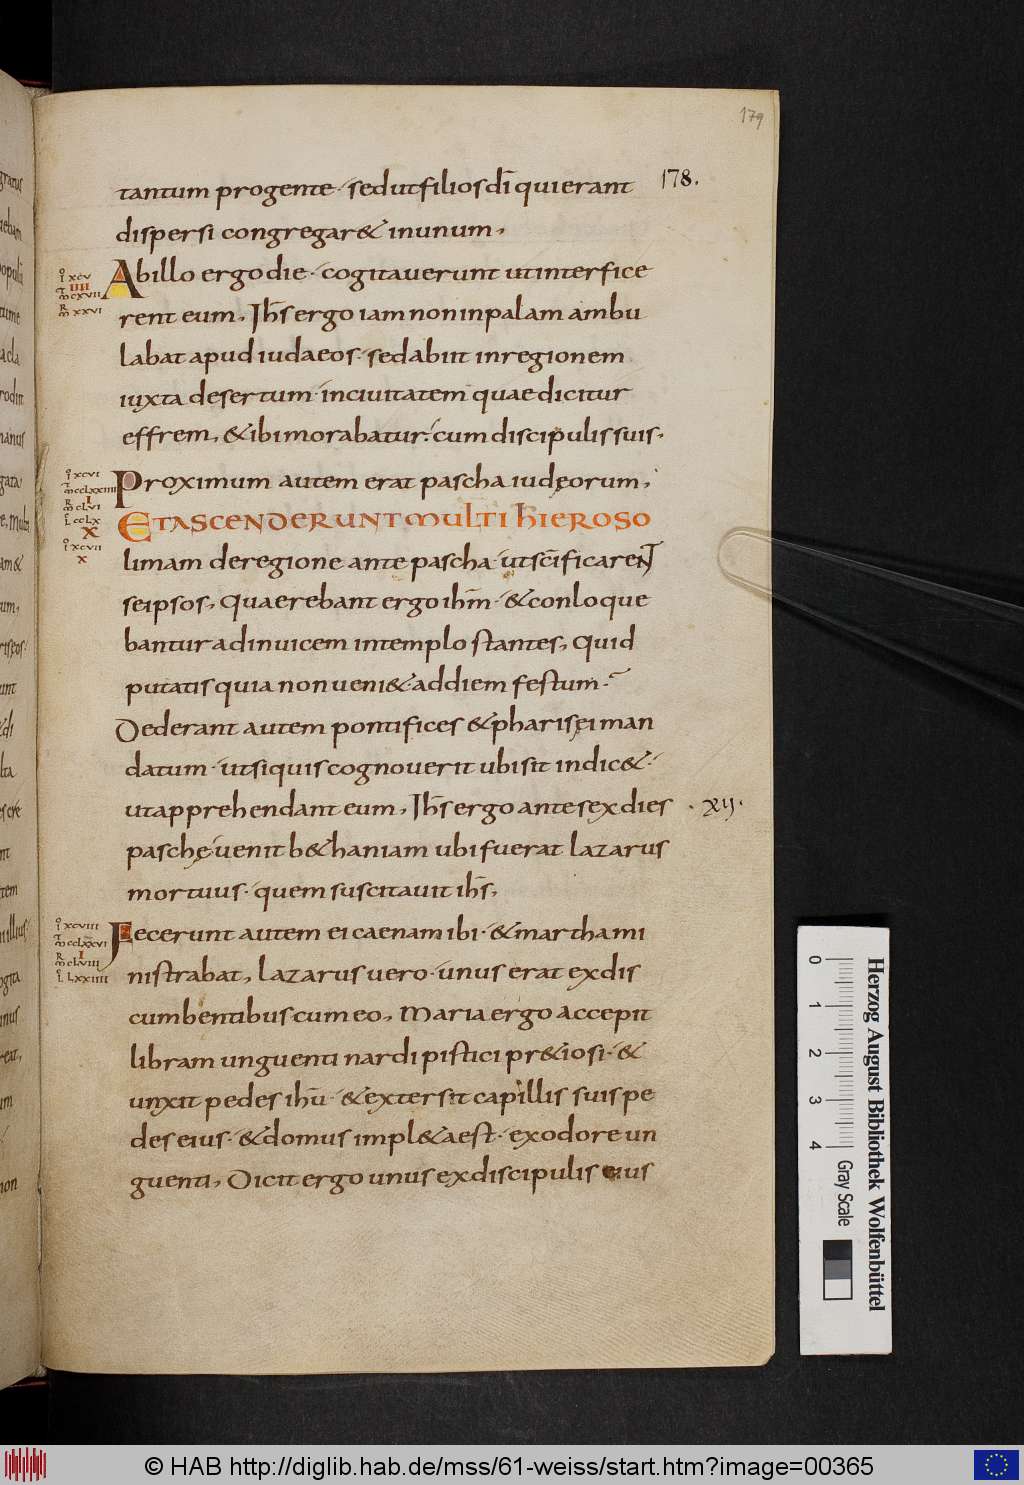 179
178.
tantum progente · sedutfilios dī quierant
dispersi congregar& inunum,
Abillo ergo die · cogitaverunt utinterfice
rent eum, Ihs̄ ergo iam noninpalam ambu
labat apud iudaeos · sedabiit inregionem
iuxta desertum · inciuitatem quae dicitur
effrem, &ibi morabatur · cum discipulis suis,
Proximum autem erat pascha iudęorum,
ETASCENDERUNT MULTI HIEROSO
limam deregione ante pascha · utsc̄ificarent
seipsos, Quaerebant ergo ihm̄ · &conloque
bantur adinuicem intemplo stantes, Quid
putatis quia non ueni& · addiem festum ·?
Dederant autem pontifices &pharisęi man
datum · utsiquis cognouerit ubi sit indic& ·
utapprehendant eum, Ihs̄ ergo antesex dies · xij ·
paschę uenit b&haniam ubi fuerat lazarus
mortuus · quem suscitauit ihs̄,
Fecerunt autem ei caenam ibi · &martha mi
nistrabat, lazarus uero · unus erat exdis
cumbentibus cum eo, Maria ergo accepit
libram unguenti nardi pistici pr&iosi · &
unxit pedes ihū · &extersit capillis suis pe
des eius · &domus impl&a est · exodore un
guenti, Dicit ergo unus exdiscipulis eius
0 1 2 3 4
Gray Scale
Herzog August Bibliothek Wolfenbüttel
© HAB http://diglib.hab.de/mss/61-weiss/start.htm?image=00365